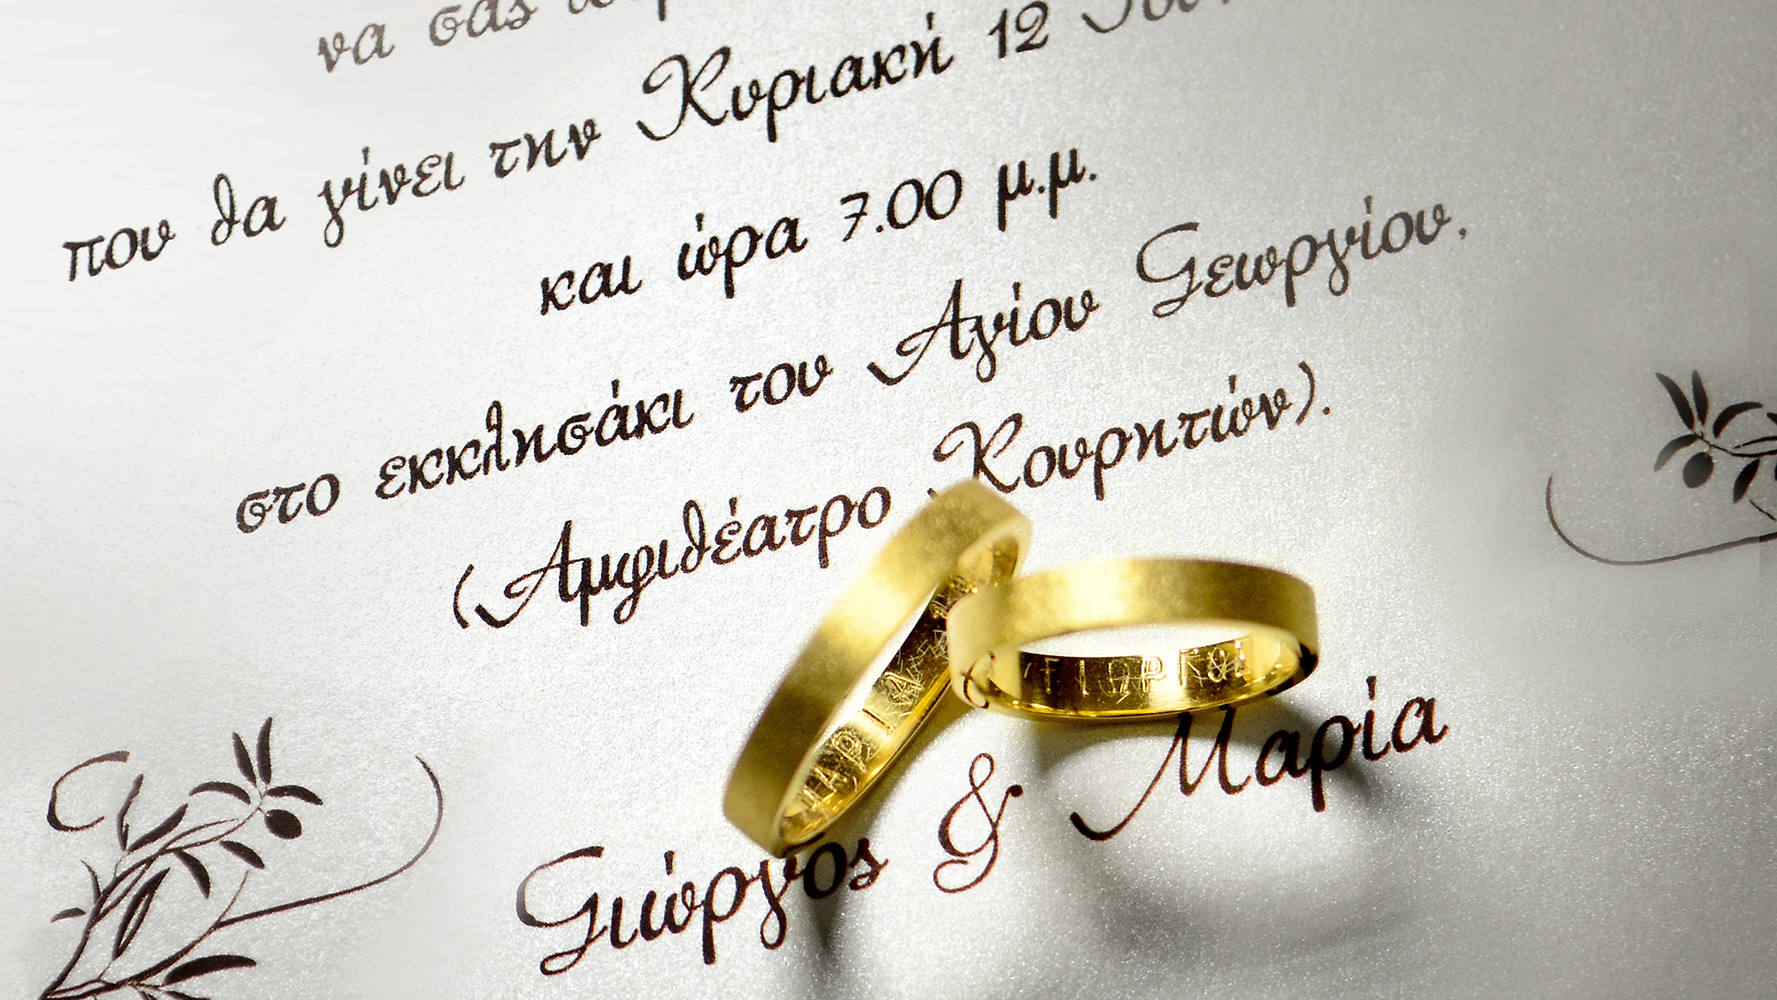 να σας
που θα γίνει την Κυριακή 12
και ώρα 7.00 μ.μ.
στο εκκλησάκι του Αγίου Γεωργίου,
(Αμφιθέατρο Κουρητών).
ΜΑΡΙΑ
ΓΙΩΡΓΟΣ
Γιώργος & Μαρία